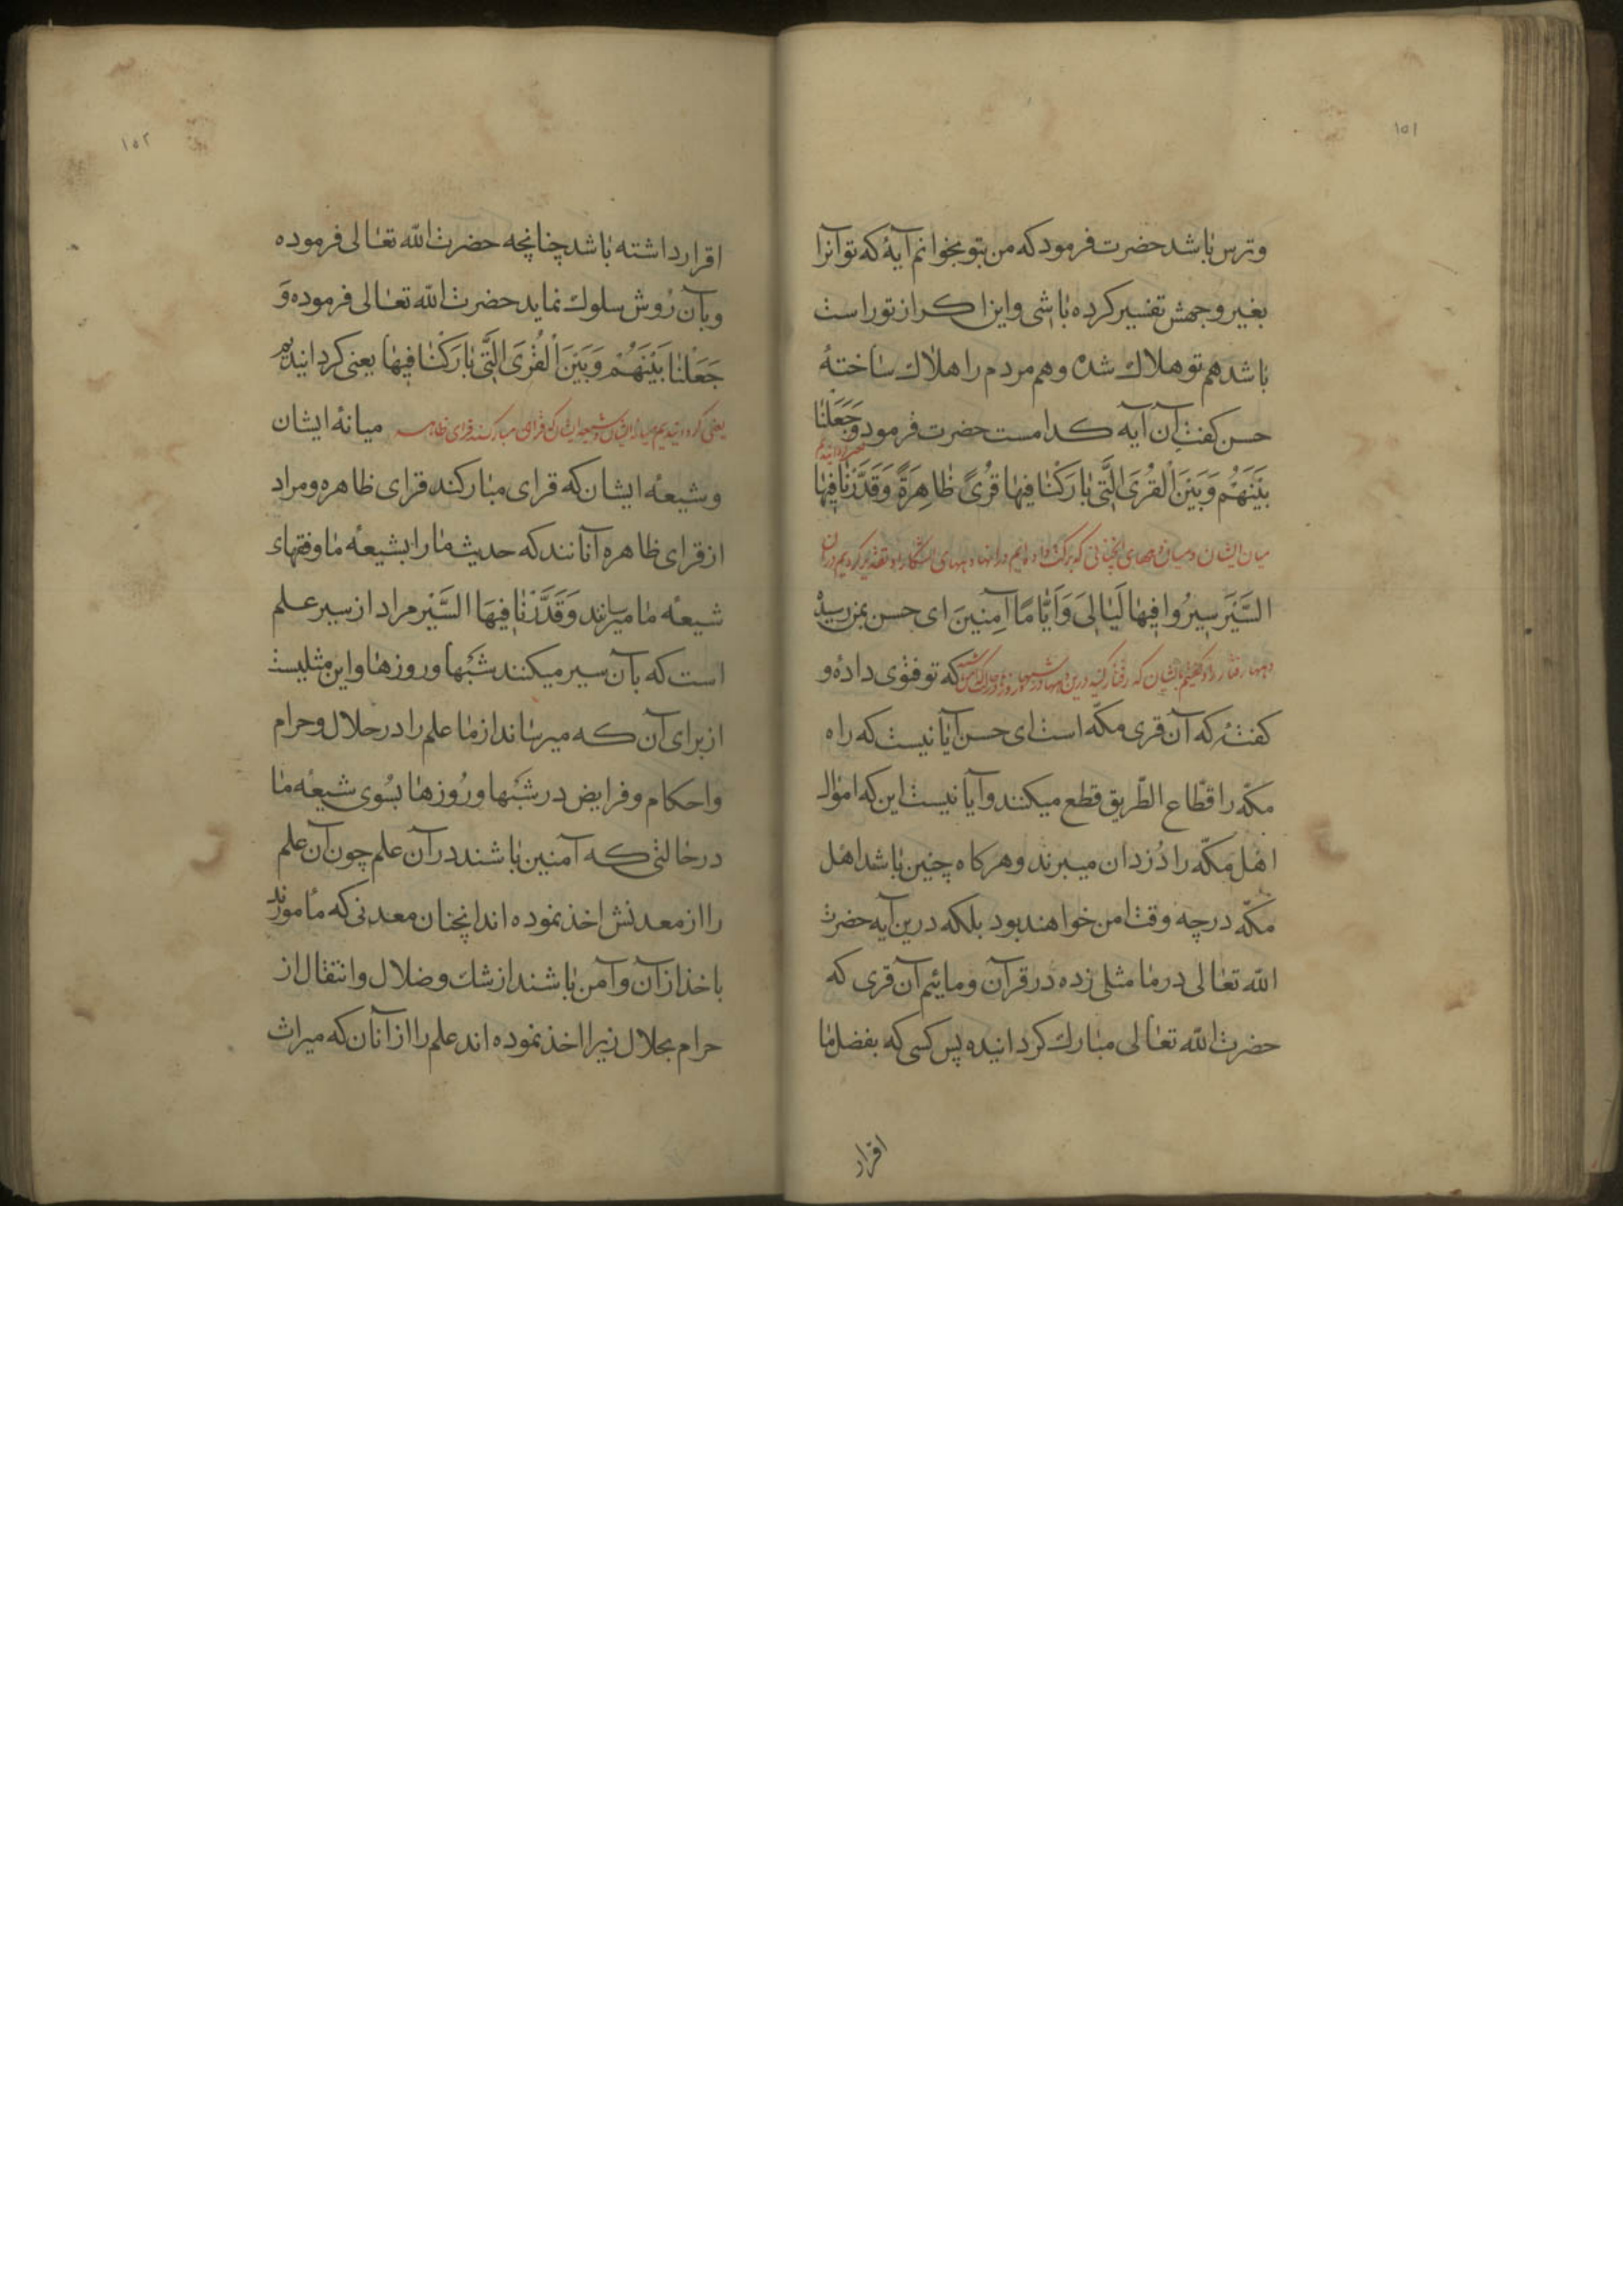 ١٥١
وترس باشد حضرت فرمود که من بتو بخوانم آیهٔ که تو آنرا
بغیر وجهش تفسیر کرده باشی و این اکر از تو راست
باشد هم تو هلاك شده وهم مردم را هلاك ساختهٔ
حسن کفت آن آیه کدامست حضرت فرمود وَجَعَلْنَا
بَیْنَهُمْ وَبَیْنَ اْلقُرَی الَّتی بَارَکْنَا فیهَا قُریً ظَاهِرَةً وَقَدَّرْنَا فیهَا
میان ایشان و میان دههای انچنانی که برکت داده ایم در انها دههای اشکارا و تقدیر کردیم در آن
السَّیْرَ سیرُوا فیهَا لَیَالِیَ وَاَیَّامًا آمِنینَ ای حسن بمن رسیده
که تو فتوی داده و
کفتهٔ که آن قری مکّه است ای حسن آیا نیست که راه
مکّه را قطّاع الطّریق قطع میکنند وآیا نیست این که اموال
اهل مکّه را دُزدان میبرند وهر کاه چنین باشد اهل
مکّه در چه وقت امن خواهند بود بلکه درین آیه حضرت
اللّه تعالی در ما مثلی زده در قرآن ومائیم آن قری که
حضرت اللّه تعالی مبارك کردانیده پس کسی که بفضل ما
اقرار
١٥٢
اقرار داشته باشد چنانچه حضرت اللّه تعالی فرموده
وبآن رَوش سلوك نماید حضرت اللّه تعالی فرموده وَ
جَعَلْنَا بَیْنَهُمْ وَبَیْنَ اْلقُرَی الَّتی بَارَکْنَا فیهَا یعنی کردانیدیم
یعنی کردانیدیم میانه ایشان و شیعه ایشان که قرای مبارکند قرای ظاهره میانهٔ ایشان
وشیعهٔ ایشان که قرای مبارکند قرای ظاهره ومراد
از قرای ظاهره آنانند که حدیث ما را بشیعهٔ ما وفقهای
شیعهٔ ما میرسانند وَقَدَّرْنَا فیهَا السَّیْرَ مراد از سیر علم
است که بآن سیر میکنند شبها وروزها واین مثلیست
از برای آن که میرساند از ما علم را در حلال وحرام
واحکام وفرایض در شبها ورُوزها بسُوی شیعهٔ ما
در حالتی که آمنین باشند در آن علم چون آن علم
را از معدنش اخذ نموده اند انچنان معدنی که مأمورند
باخذ از آن وآمن باشند از شك وضلال وانتقال از
حرام بحلال زیرا اخذ نموده اند علم را از آنان که میراث